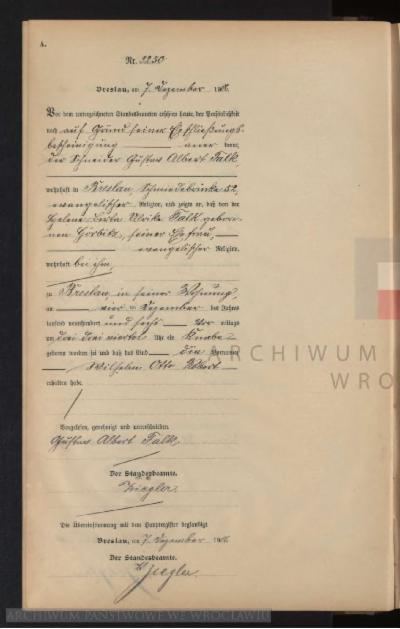 A.
Nr. 2230
Breslau, am 7. Dezember 1906.
Vor dem unterzeichneten Standesbeamten erschien heute, der Persönlichkeit
nach auf Grund seiner Eheschließungs-
bescheinigung anerkannt,
der Schneider Gustav Albert Falk
wohnhaft in Breslau, Schmiedebrücke 52,
evangelischer Religion, und zeigte an, daß von der
Helene Berta Ulrike Falk gebore-
nen, seiner Ehefrau,
evangelischer Religion,
wohnhaft bei ihm,
zu Breslau, in seiner Wohnung,
am vier ten Dezember des Jahres
tausend neunhundert und sechs Vor mittags
um drei drei viertel Uhr ein Knabe
geboren worden sei und daß das Kind die Vornamen
Wilhelm Otto
erhalten habe.
Vorgelesen, genehmigt und unterschrieben
Gustav Albert Falk
Der Standesbeamte.
Ziegler.
Die Übereinstimmung mit dem Hauptregister beglaubigt
Breslau, am 7. Dezember 1906.
Der Standesbeamte.
Ziegler.
ARCHIWUM
WRO
ARCHIWUM PAŃSTWOWE WE WROCŁAWIU